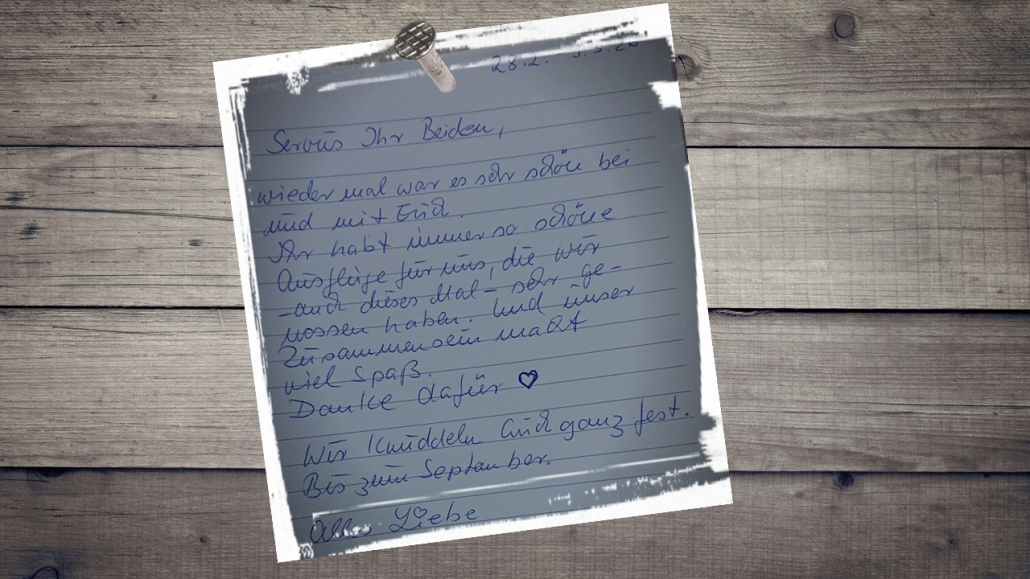 28.2. 3.3.20
Servus Ihr Beiden,
wieder mal war es sehr schön bei
und mit Euch.
Ihr habt immer so schöne
Ausflüge für uns, die wir
- auch dieses Mal - sehr ge-
nossen haben. Und unser
Zusammensein macht
viel Spaß.
Danke dafür ♡
Wir knuddeln Euch ganz fest.
Bis zum September.
Alles Liebe